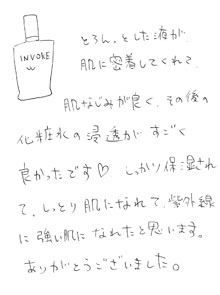 INVOKE
とろん、とした液が、
肌に密着してくれて、
肌なじみが良く、その後の
化粧水の浸透がすごく
良かったです♡ しっかり保湿され
て、しっとり肌になれて、紫外線
に強い肌になれたと思います。
ありがとうございました。